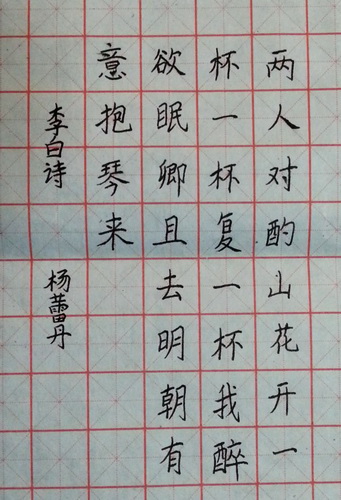 两人对酌山花开一
杯一杯复一杯我醉
欲眠卿且去明朝有
意抱琴来
李白诗
杨蕾丹